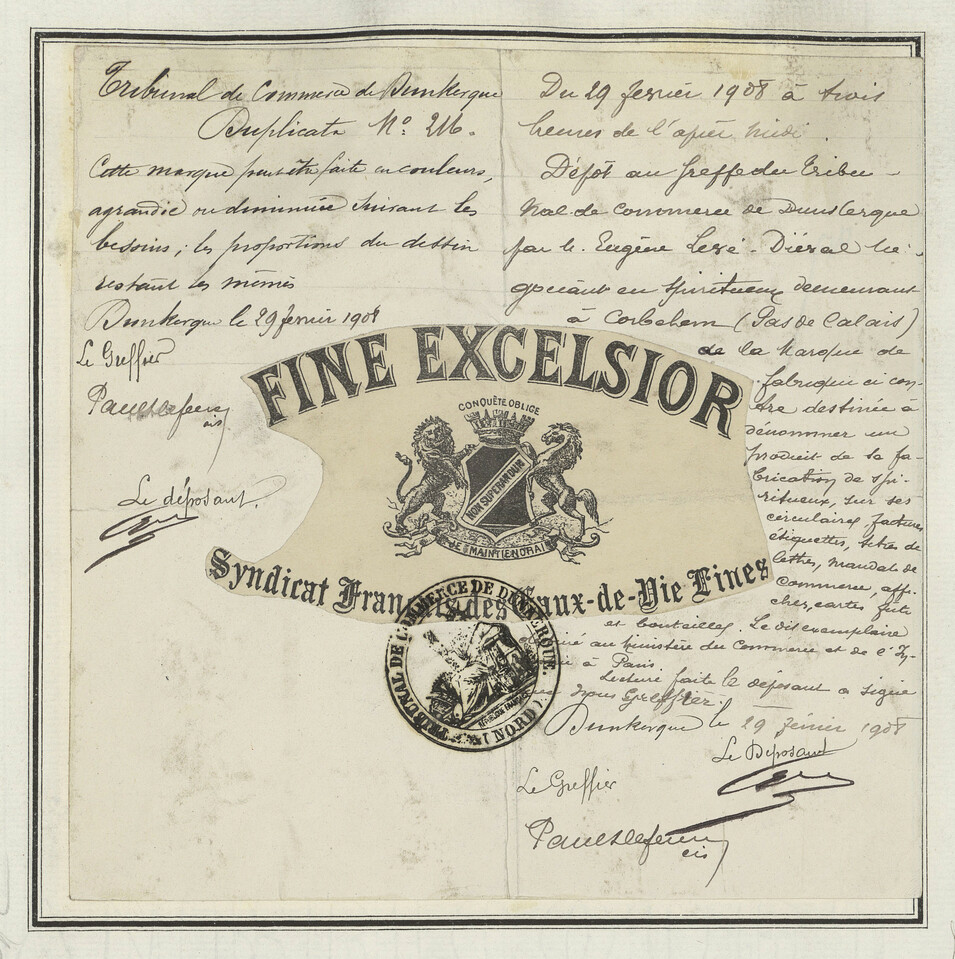 Tribunal de Commerce de Dunkerque
Duplicata Nº 216.
Cette marque peut être faite en couleurs,
agrandie ou diminuée suivant les
besoins ; les proportions du dessin
restant les mêmes
Dunkerque le 29 fevrier 1908
Le Greffier
Le déposant.
Du 29 fevrier 1908 à trois
heures de l'après midi.
Dépôt au Greffe du Tribu-
nal de Commerce de Dunkerque
par M. Eugène né-
gociant en Spiritueux demeurant
à Corbehem (Pas de Calais)
de la Marque de
fabrique ci con-
tre destinée à
dénommer un
produit de sa fa-
brication de spi-
ritueux, sur ses
circulaires, factures
étiquettes, têtes de
lettres, mandats de
Commerce, affi-
ches, cartes, fûts
et bouteilles. Le dit exemplaire
au Ministère du Commerce et de l'In-
à Paris.
Lecture faite le déposant a signé
nous Greffier.
Dunkerque le 29 février 1908
Le Déposant
Le Greffier
FINE EXCELSIOR
CONQUÊTE OBLIGE
NON SUPERANDUM
JE MAINTIENDRAI
Syndicat Français des Eaux-de-Vie Fines
TRIBUNAL DE COMMERCE DE DUNKERQUE.
(NORD)